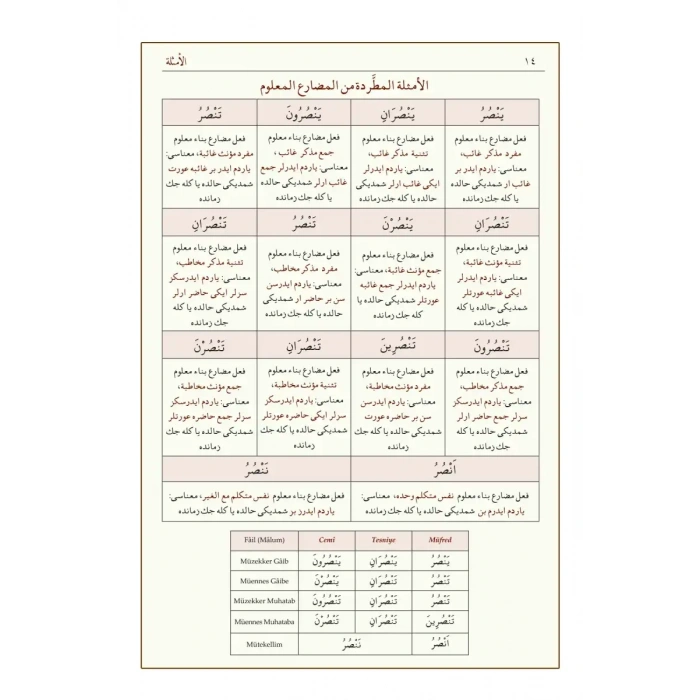 ١٤
الأمثلة
الأمثلة المطَّردة من المضارع المعلوم
يَنْصُرُ
يَنْصُرَانِ
يَنْصُرُونَ
تَنْصُرُ
فعل مضارع بناء معلوم
مفرد مذكر غائب،
معناسى: ياردم ايدر بر
غائب ار شمديكى حالده
يا كله جك زمانده
فعل مضارع بناء معلوم
تثنية مذكر غائب،
معناسى: ياردم ايدرلر
ايكى غائب ارلر شمديكى
حالده يا كله جك زمانده
فعل مضارع بناء معلوم
جمع مذكر غائب،
معناسى: ياردم ايدرلر جمع
غائب ارلر شمديكى حالده
يا كله جك زمانده
فعل مضارع بناء معلوم
مفرد مؤنث غائبة، معناسى:
ياردم ايدر بر غائبه عورت
شمديكى حالده يا كله جك
زمانده
تَنْصُرَانِ
يَنْصُرْنَ
تَنْصُرُ
تَنْصُرَانِ
فعل مضارع بناء معلوم
تثنية مؤنث غائبة،
معناسى: ياردم ايدرلر
ايكى غائبه عورتلر
شمديكى حالده يا كله
جك زمانده
فعل مضارع بناء معلوم
جمع مؤنث غائبة، معناسى:
ياردم ايدرلر جمع غائبه
عورتلر شمديكى حالده يا
كله جك زمانده
فعل مضارع بناء معلوم
مفرد مذكر مخاطب،
معناسى: ياردم ايدرسن
سن بر حاضر ار شمديكى
حالده يا كله جك زمانده
فعل مضارع بناء معلوم
تثنية مذكر مخاطب،
معناسى: ياردم ايدرسكز
سزلر ايكى حاضر ارلر
شمديكى حالده يا كله
جك زمانده
تَنْصُرُونَ
تَنْصُرِينَ
تَنْصُرَانِ
تَنْصُرْنَ
فعل مضارع بناء معلوم
جمع مذكر مخاطب،
معناسى: ياردم ايدرسكز
سزلر جمع حاضر ارلر
شمديكى حالده يا كله
جك زمانده
فعل مضارع بناء معلوم
مفرد مؤنث مخاطبة،
معناسى: ياردم ايدرسن
سن بر حاضره عورت
شمديكى حالده يا كله
جك زمانده
فعل مضارع بناء معلوم
تثنية مؤنث مخاطبة،
معناسى: ياردم ايدرسكز
سزلر ايكى حاضره عورتلر
شمديكى حالده يا كله جك
زمانده
فعل مضارع بناء معلوم
جمع مؤنث مخاطبة،
معناسى: ياردم ايدرسكز
سزلر جمع حاضره عورتلر
شمديكى حالده يا كله جك
زمانده
اَنْصُرُ
نَنْصُرُ
فعل مضارع بناء معلوم نفس متكلم وحده، معناسى:
ياردم ايدرم بن شمديكى حالده يا كله جك زمانده
فعل مضارع بناء معلوم نفس متكلم مع الغير، معناسى:
ياردم ايدرز بز شمديكى حالده يا كله جك زمانده
Fâil (Mâlum) Cemî Tesniye Müfred
Müzekker Gâib يَنْصُرُونَ يَنْصُرَانِ يَنْصُرُ
Müennes Gâibe يَنْصُرْنَ تَنْصُرَانِ تَنْصُرُ
Müzekker Muhatab تَنْصُرُونَ تَنْصُرَانِ تَنْصُرُ
Müennes Muhataba تَنْصُرْنَ تَنْصُرَانِ تَنْصُرِينَ
Mütekellim نَنْصُرُ اَنْصُرُ